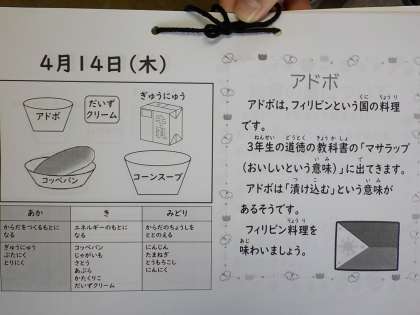 4月14日(木)
アドボ
だいず
クリーム
ぎゅうにゅう
牛乳
コッペパン
コーンスープ
あか
き
みどり
からだをつくるもとに
なる
エネルギーのもとに
なる
からだのちょうしを
ととのえる
ぎゅうにゅう
ぶたにく
とりにく
コッペパン
じゃがいも
さとう
あぶら
かたくりこ
だいずクリーム
にんじん
たまねぎ
とうもろこし
にんにく
アドボ
アドボは,フィリピンという国の料理
です。
3年生の道徳の教科書の「マサラップ
(おいしいという意味)」に出てきます。
アドボは「漬け込む」という意味が
あるそうです。
フィリピン料理を
味わいましょう。